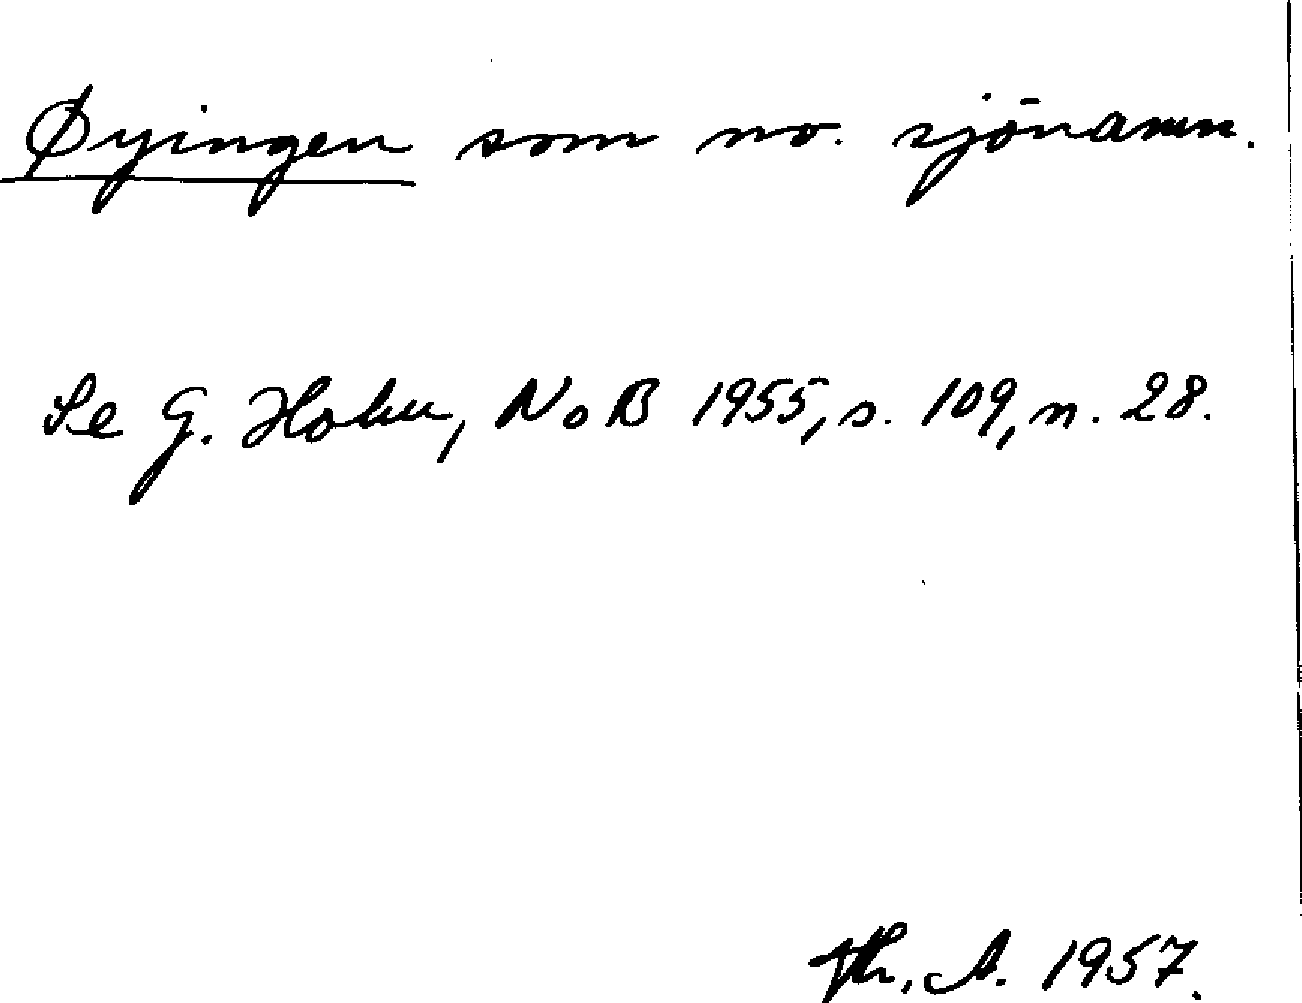 Øyingen som no. sjönamn.
Se G. Holm, NoB 1955, s. 109, n. 28.
Th. A. 1957.